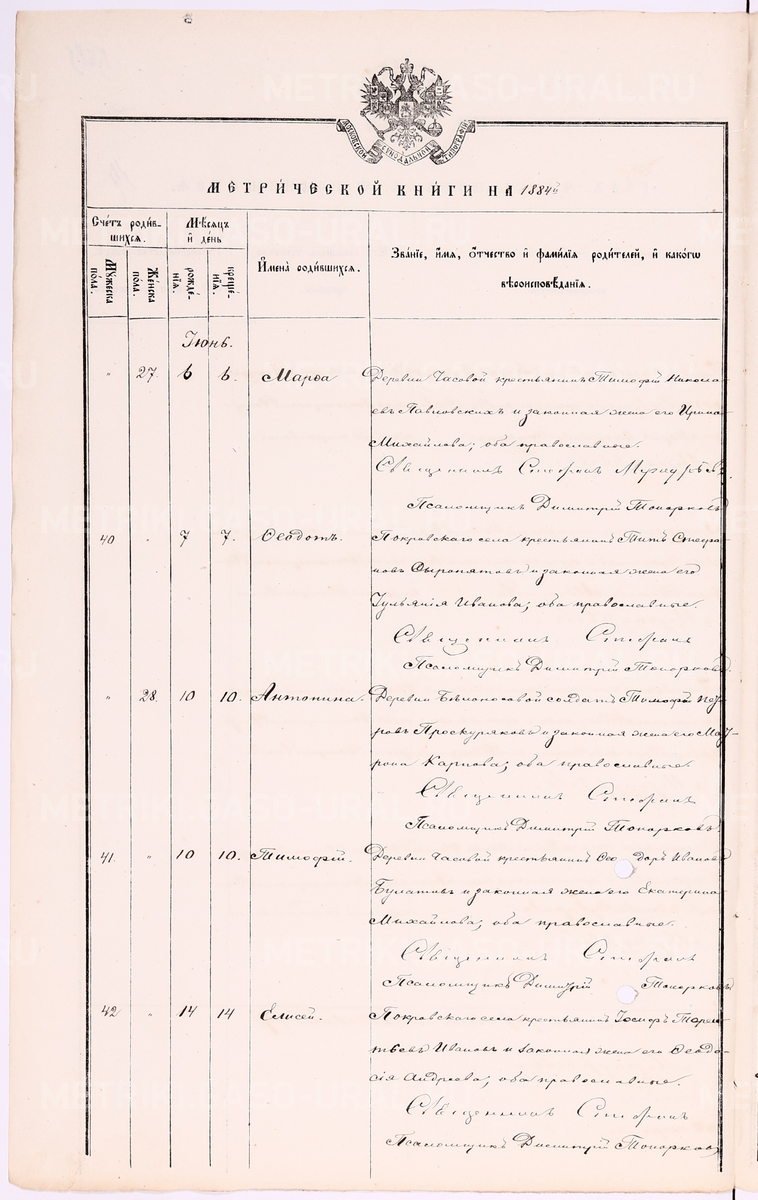 МОСКОВСКОЙ СѴНОДАЛЬНОЙ ТИПОГРАФІИ
МЕТРИ́ЧЕСКОЙ КНИ́ГИ НА 1884й
Сче́тъ роди́в-
шихся.
Мꙋ́жеска пола.
Же́нска пола.
Мѣ́сяцъ
и҆ де́нь
рожде́-
нїѧ.
креще́-
нїѧ.
И҆мена̀ родившихся.
Зва́нїе, и҆́мя, о҆́тчество и҆ фами́лїя роди́телей, и҆ како́гѡ
вѣроисповѣ́данїя.
Іюнь.
" 27. 6 6. Марѳа Деревни Часовой крестьянинъ Тимофій Никола-
евъ Павловскихъ и законная жена его Ирина
Михайлова; оба православные.
Священникъ Стефанъ
Псаломщикъ Димитрій Топорковъ
40 " 7 7. Ѳеодотъ. Покровскаго села крестьянинъ Титъ Стефа-
новъ и законная жена его
Іульянія Иванова; оба православные.
Священникъ Стефанъ
Псаломщикъ Димитрій Топорковъ.
" 28. 10 10. Антонина. Деревни Бѣлоносовой солдатъ Тимофій Пет-
ровъ Проскуряковъ и законная жена его Мат-
рона Карпова; оба православные.
Священникъ Стефанъ
Псаломщикъ Димитрій Топорковъ.
41. " 10 10. Тимофій. Деревни Часовой крестьянинъ Ѳеодоръ Ивановъ
Булатовъ и законная жена его Екатерина
Михайлова; оба православные.
Священникъ Стефанъ
Псаломщикъ Димитрій Топорковъ
42 " 14 14 Елисей. Покровскаго села крестьянинъ Іосифъ Терен-
тьевъ Ивановъ и законная жена его Ѳеодо-
сія Андреева; оба православные.
Священникъ Стефанъ
Псаломщикъ Димитрій Топорковъ